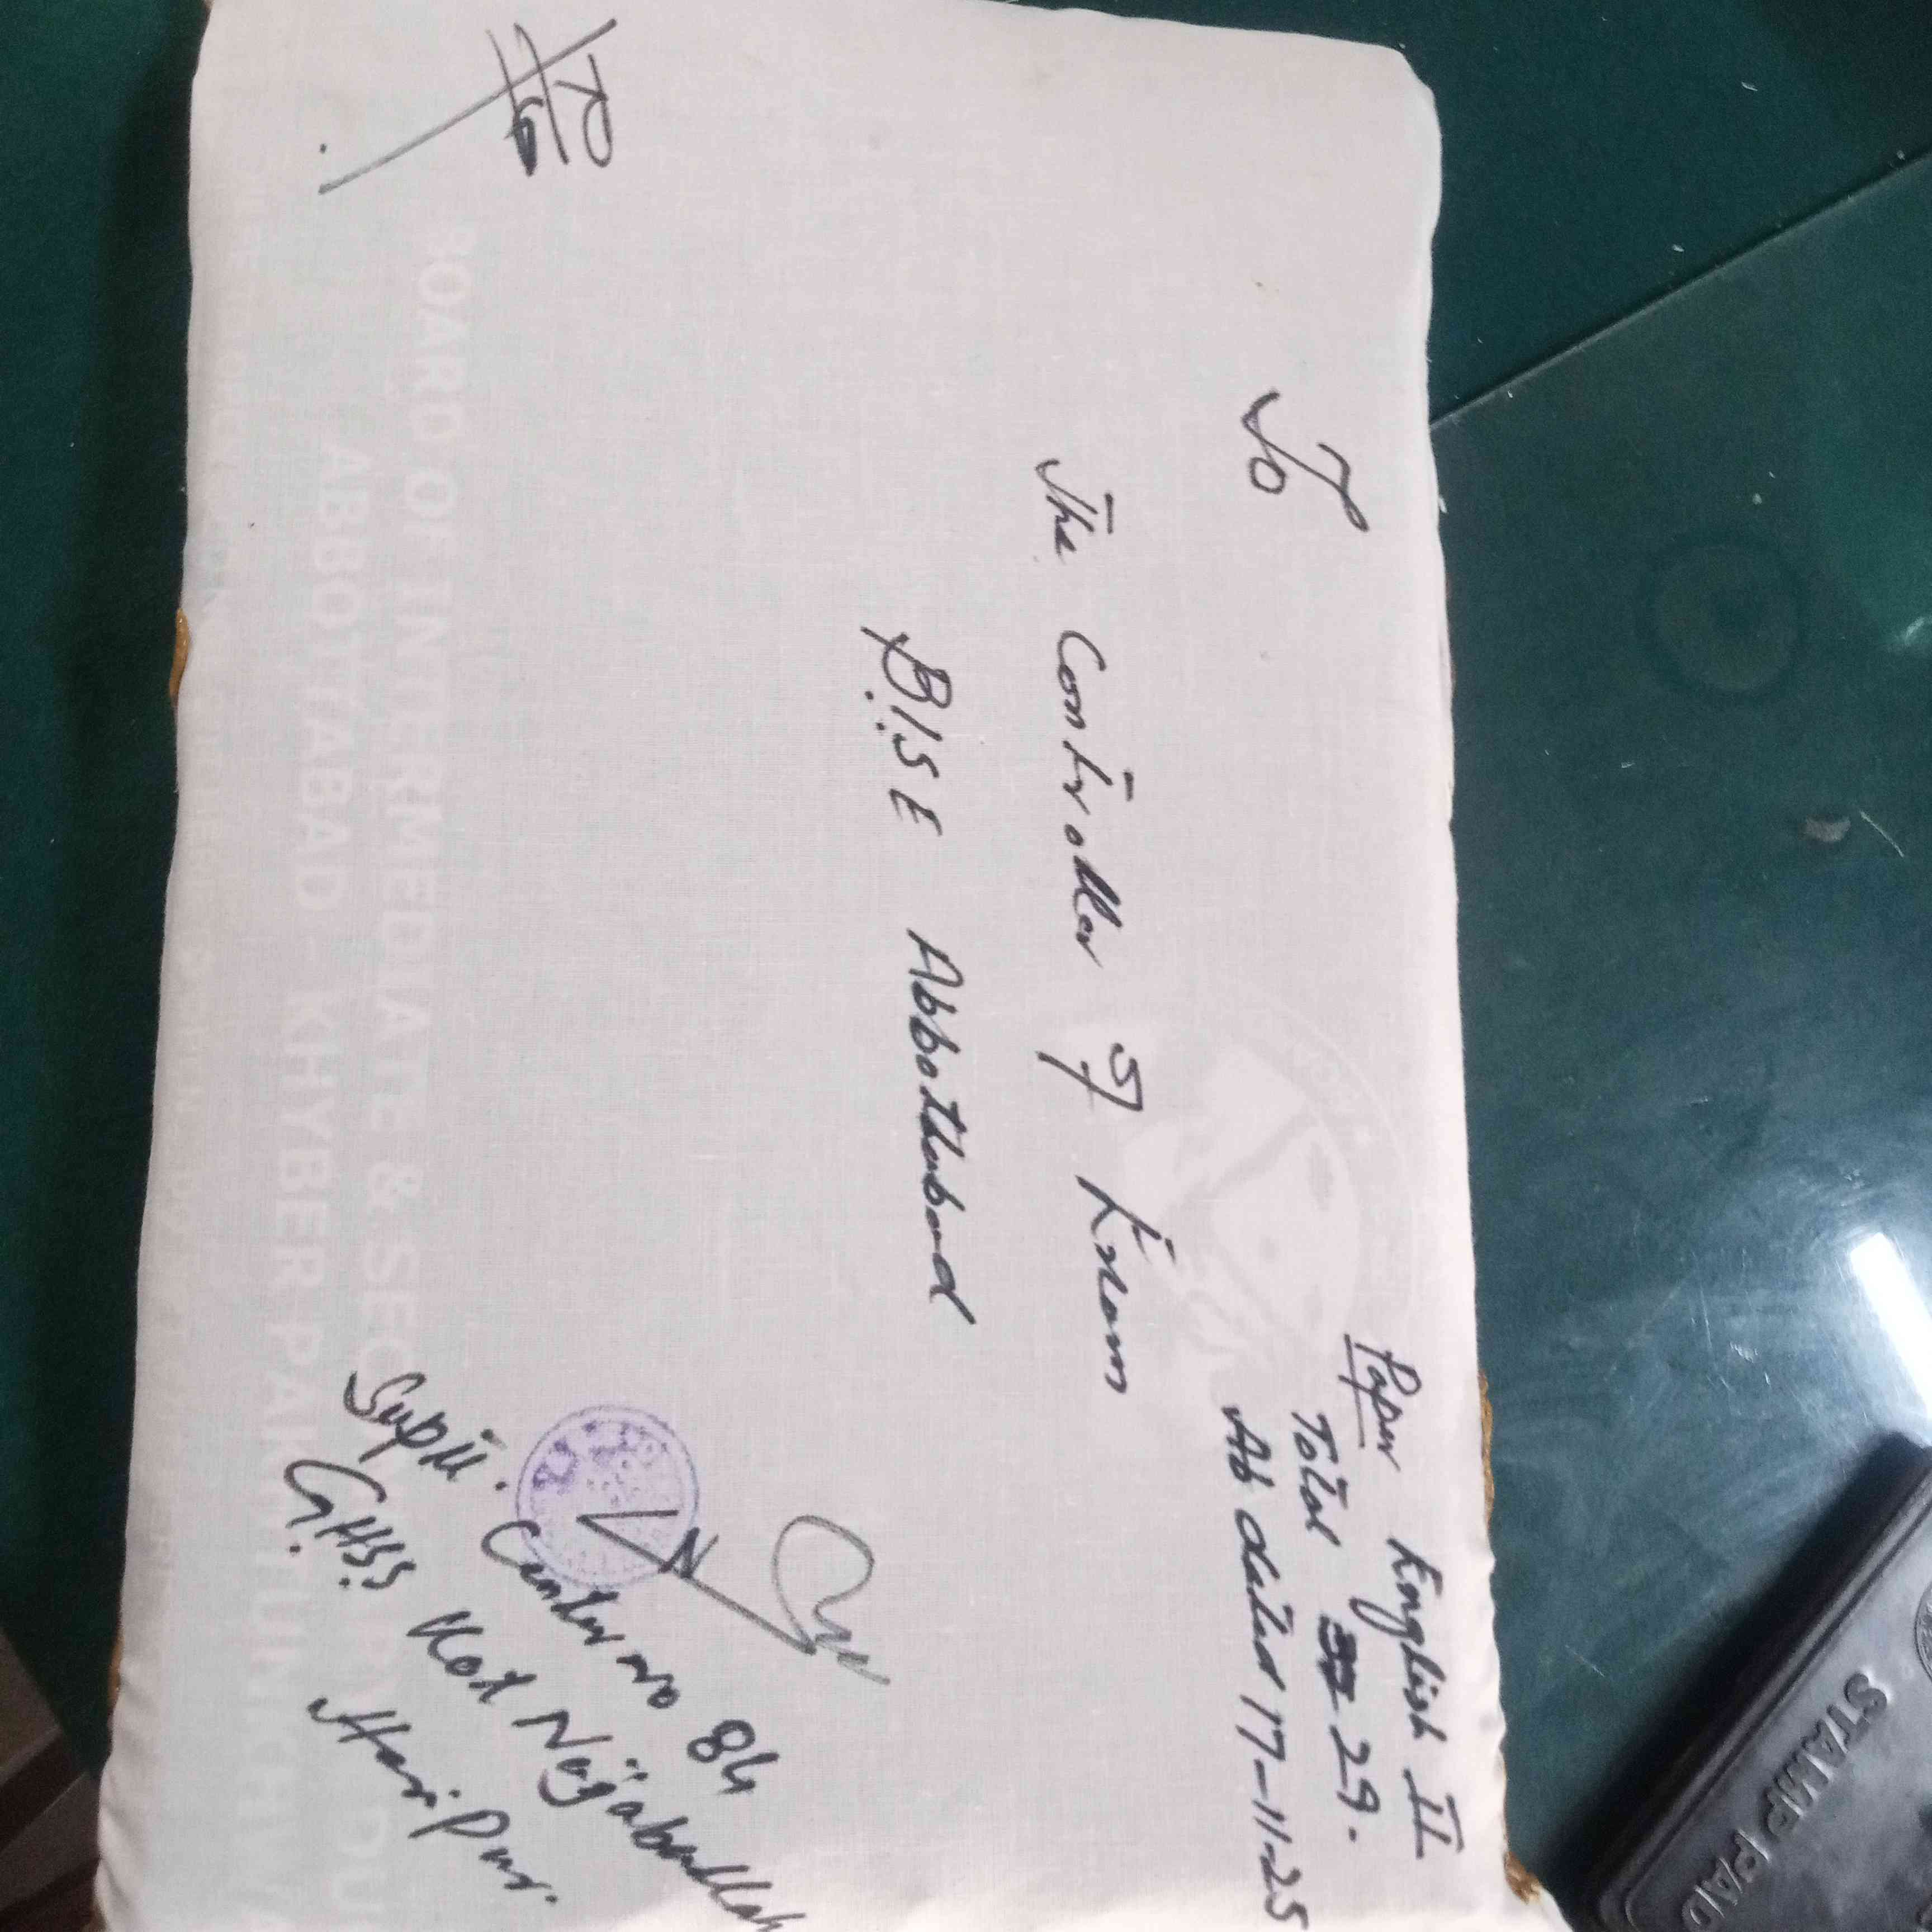 Paper English II
Total 29.
Ab dated 17-11-25
To
The Controller of Exam
BISE Abbottabad
Supdt. Center no 84
GHSS Kot Najabullah
Hari Pur.
BOARD OF INTERMEDIATE & SECO
ABBOTTABAD KHYBER PAKHTUNKHWA
STAMP PAD